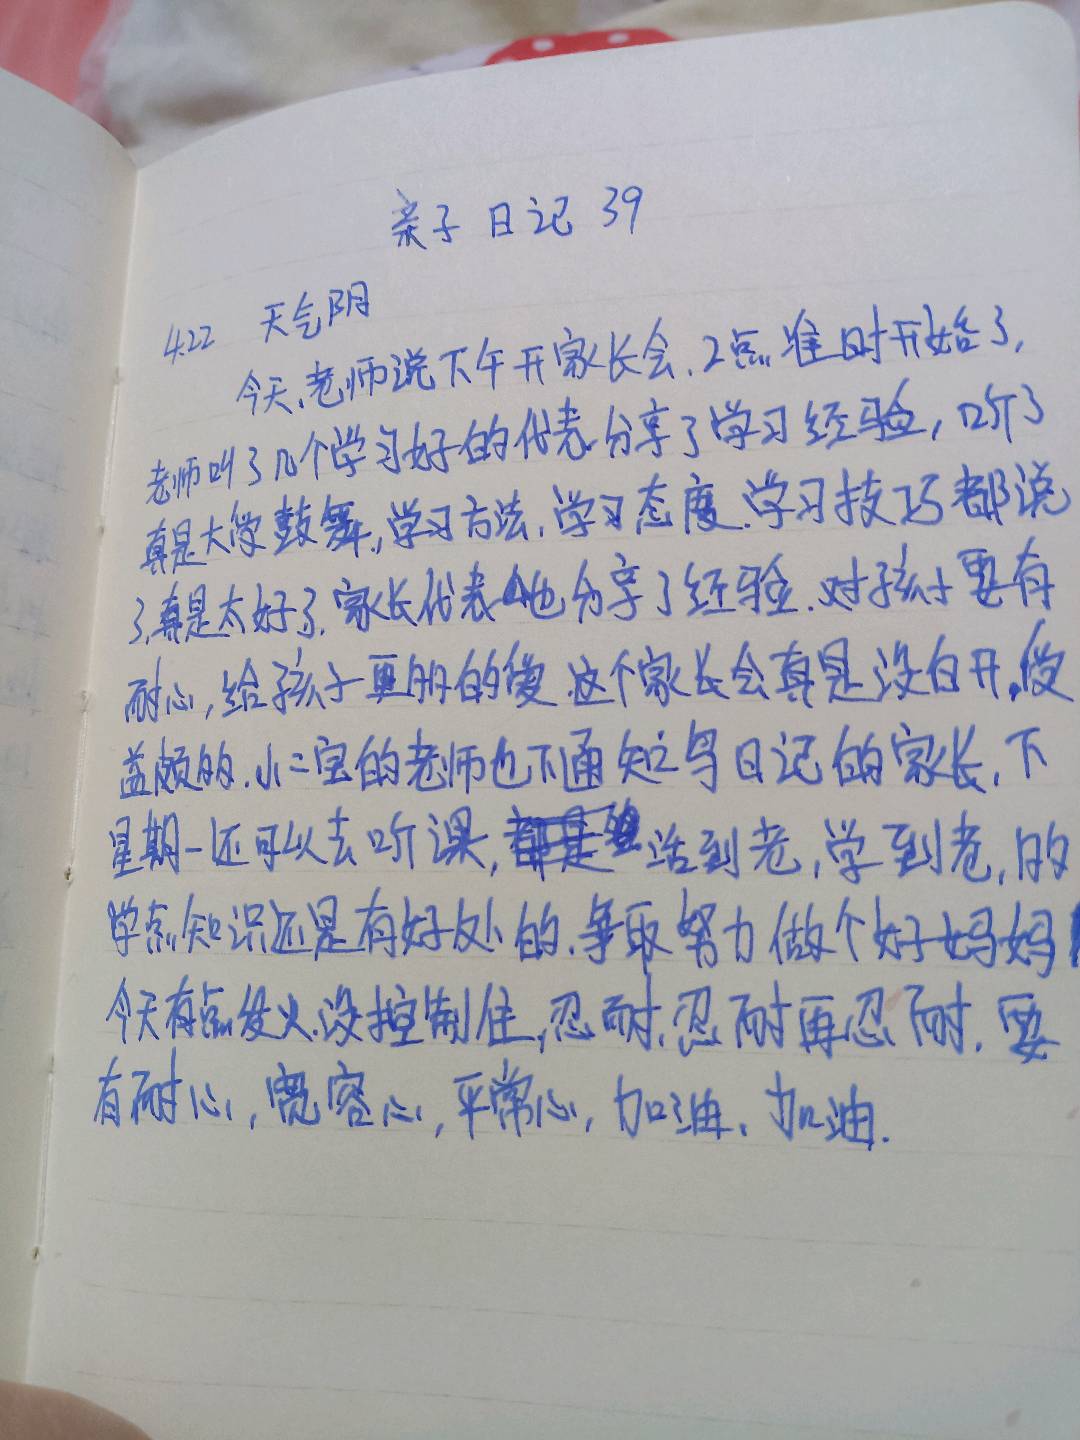 亲子日记 39
4.22 天气阴
今天,老师说下午开家长会.2点准时开始了,
老师叫了几个学习好的代表分享了学习经验,听了
真是大受鼓舞,学习方法,学习态度.学习技巧都说
了,真是太好了,家长代表也分享了经验.对孩子要有
耐心,给孩子更多的爱.这个家长会真是没白开,受
益颇多.小二宝的老师也下通知写日记的家长,下
星期一还可以去听课,活到老,学到老,多
学点知识还是有好处的.争取努力做个好妈妈
今天有点发火,没控制住,忍耐,忍耐再忍耐.要
有耐心,宽容心,平常心,加油,加油.